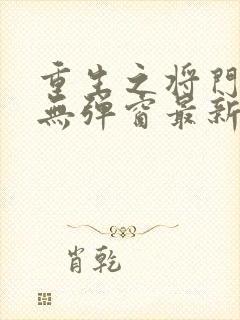 重生之将門
無彈窗最新
肖乾